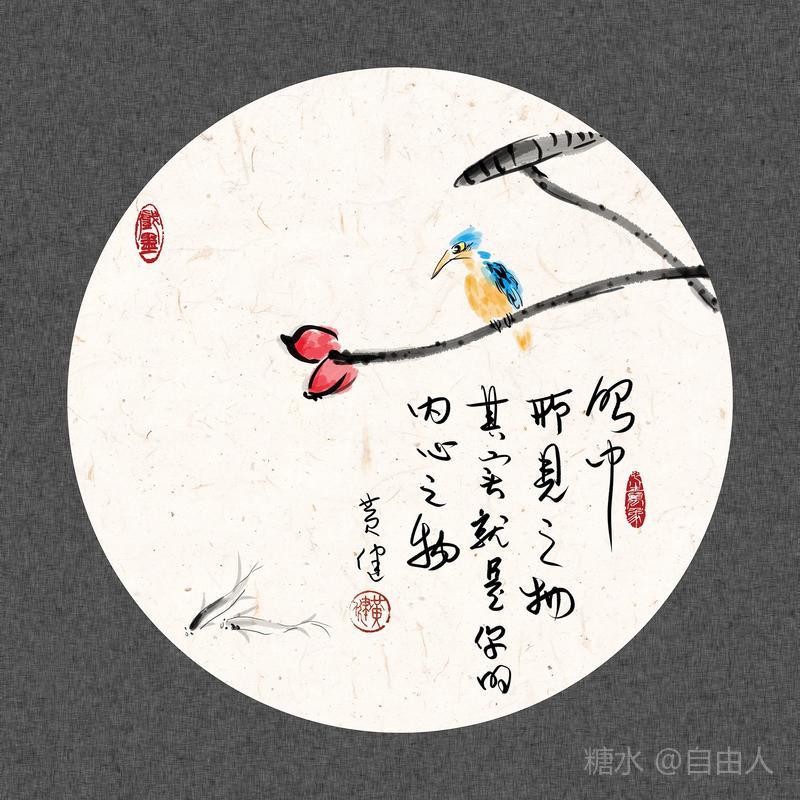 眼中
所見之物
其实就是你的
内心之物
黄健
黄健
糖水 @自由人